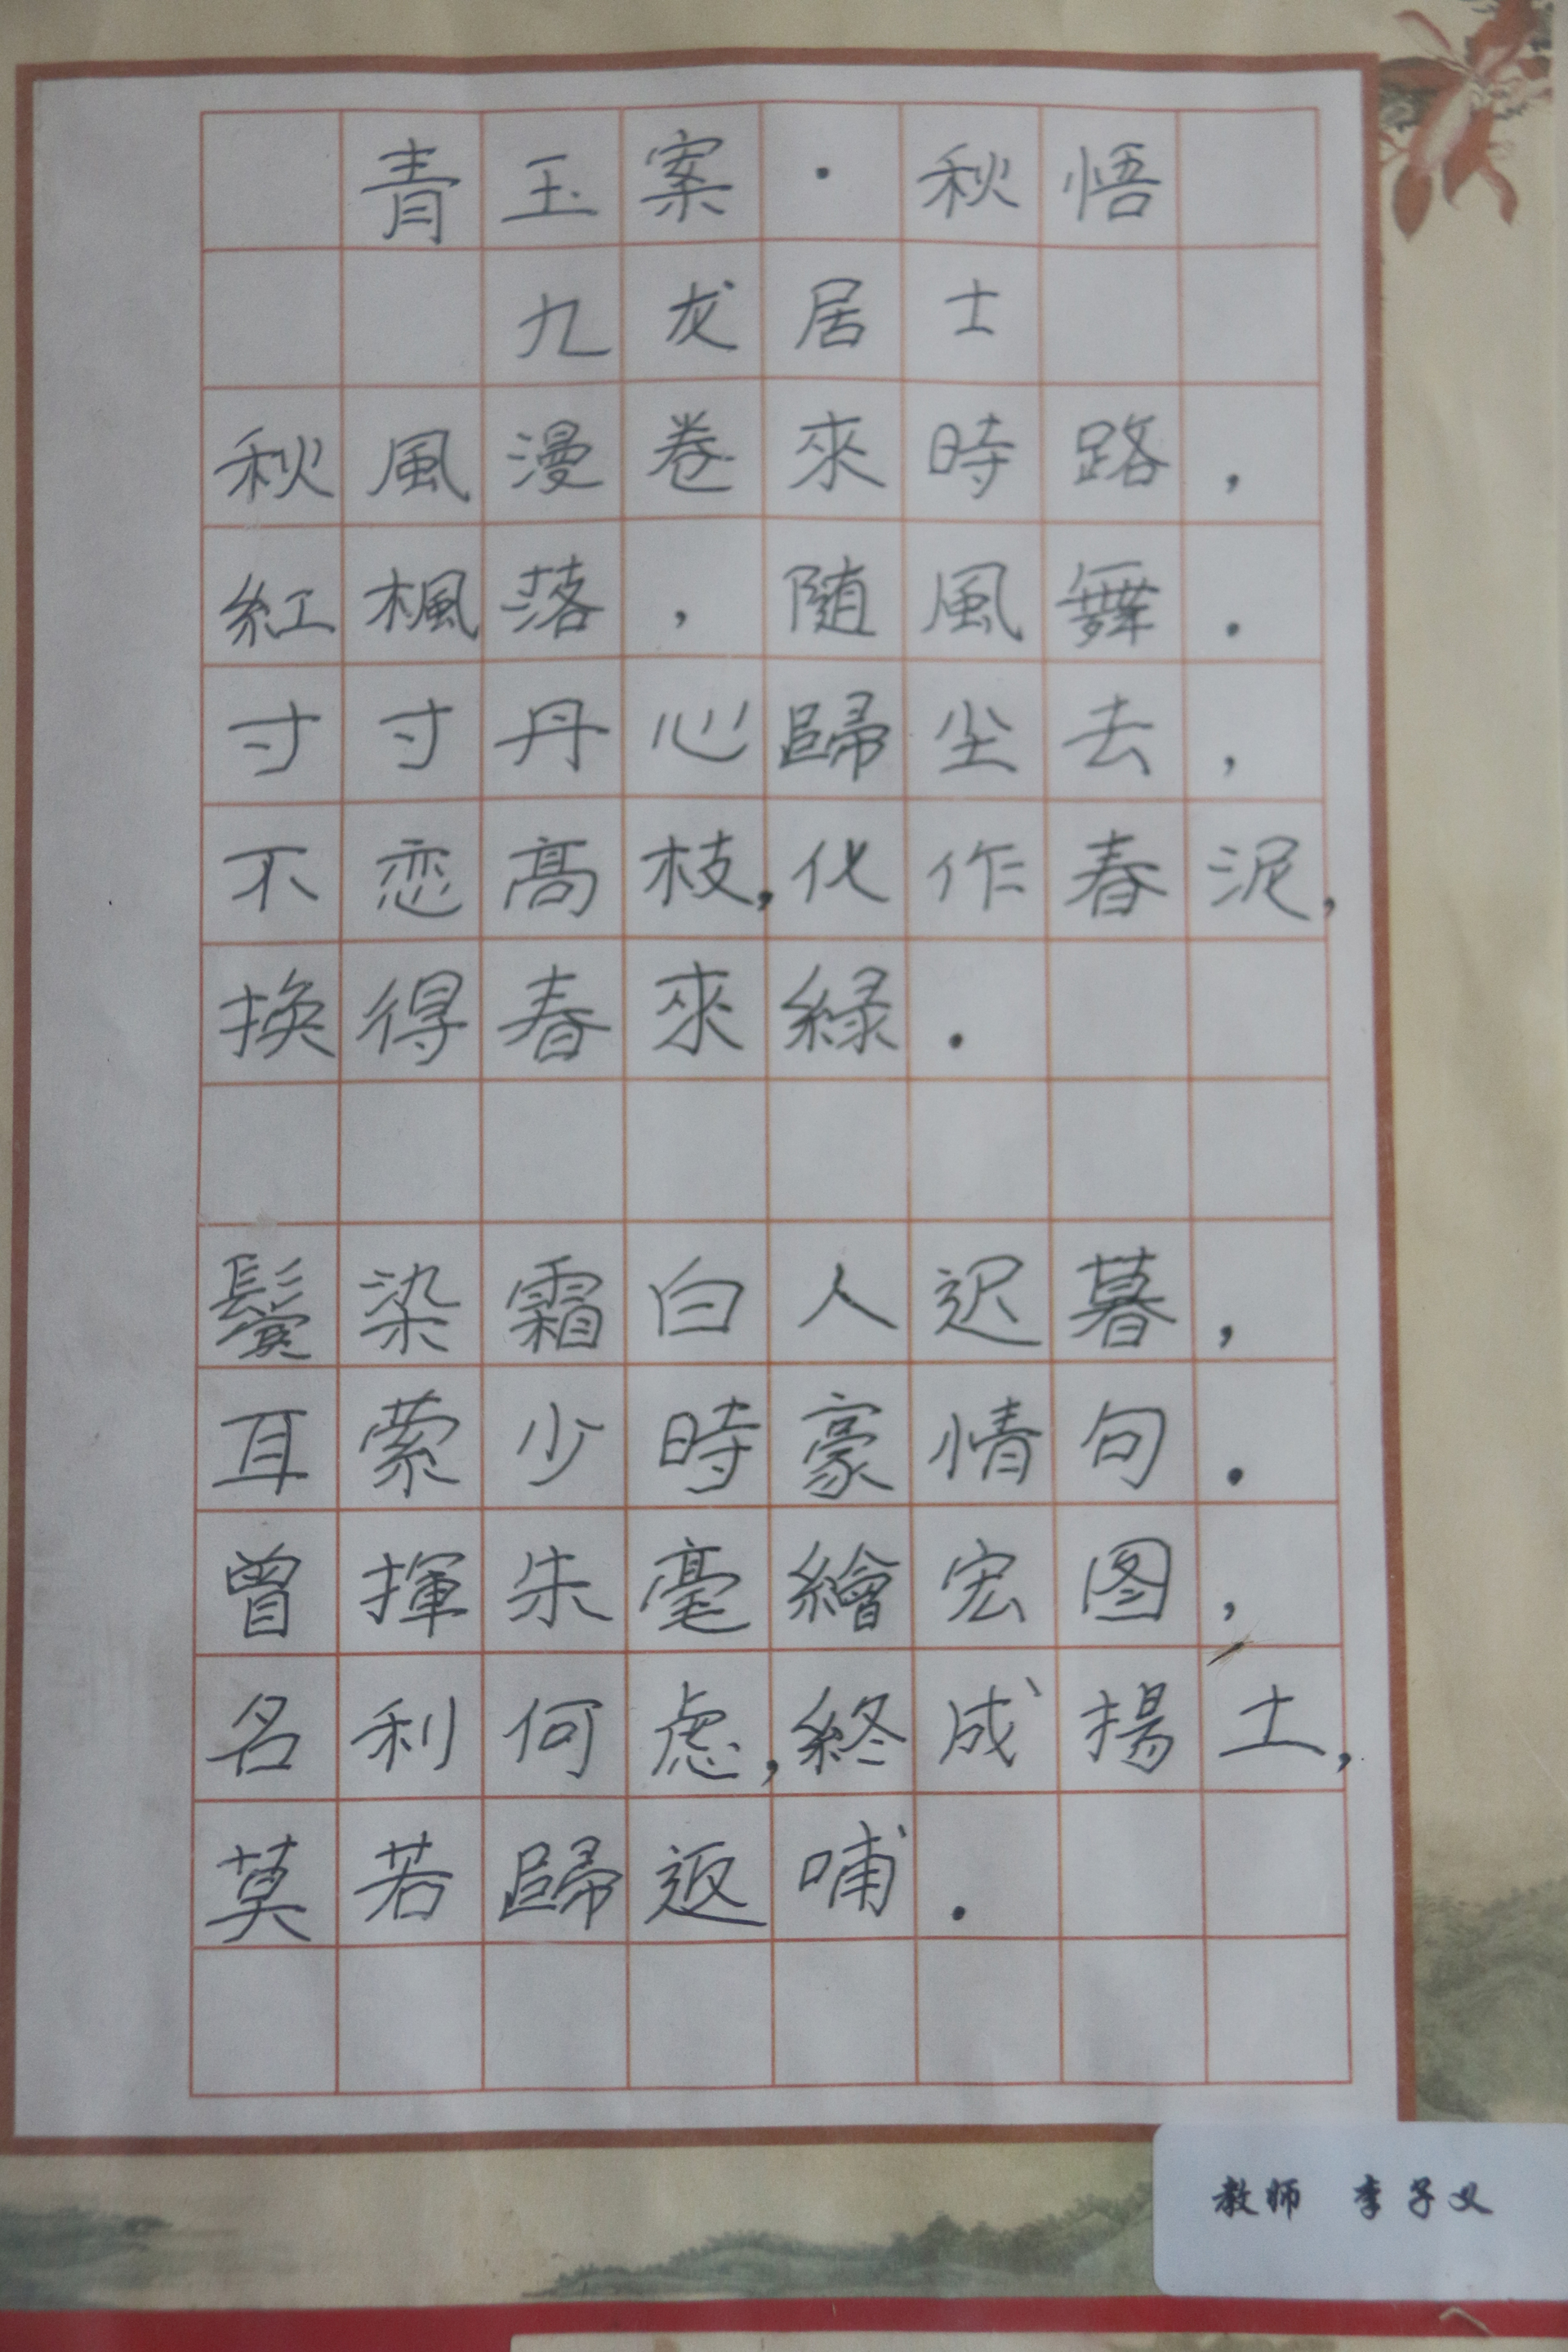 青玉案·秋悟
九龙居士
秋風漫卷來時路，
紅楓落，随風舞.
寸寸丹心歸尘去，
不恋高枝,化作春泥,
换得春來緑.
鬓染霜白人迟暮,
耳萦少時豪情句.
曾揮朱毫繪宏图,
名利何虑,終成揚土,
莫若歸返哺.
教师 李子义